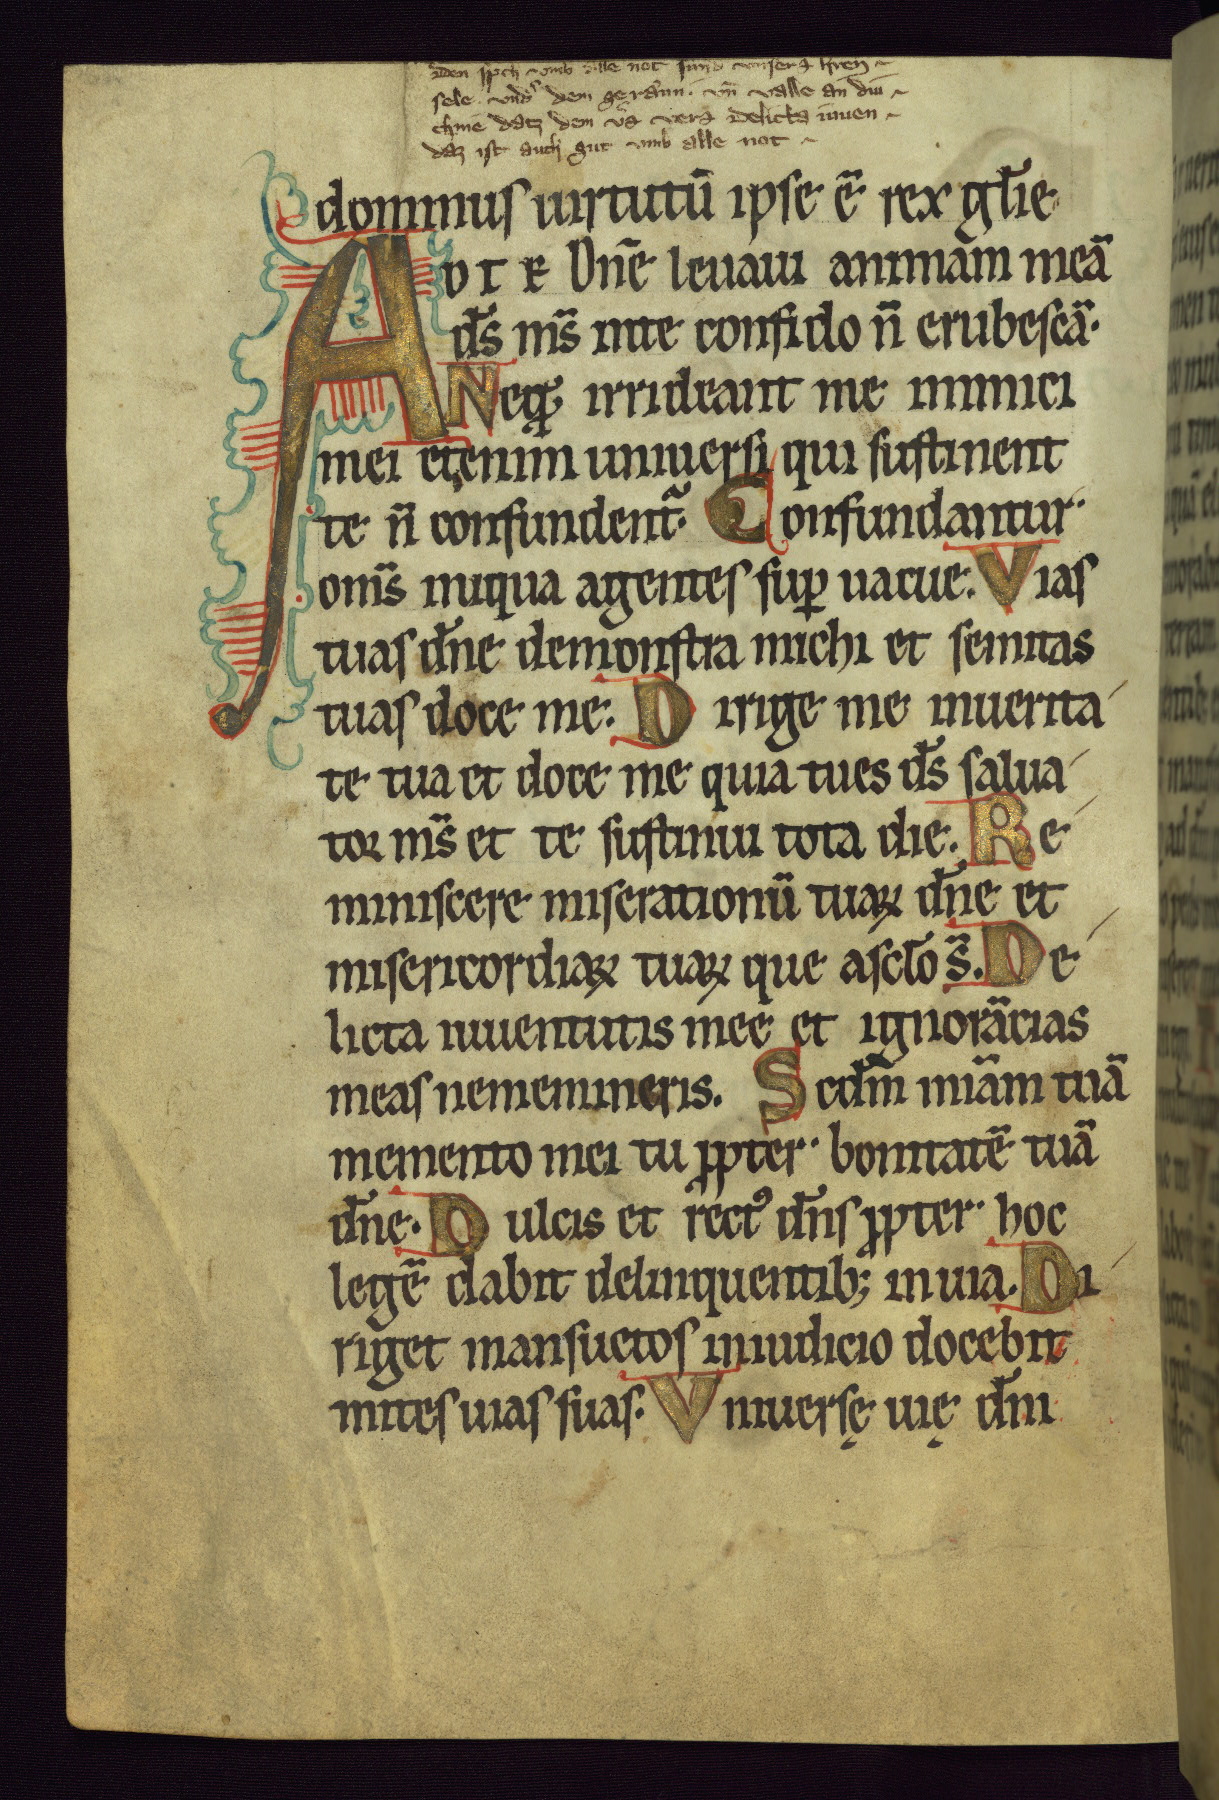 den spch vmb alle not sund vnsera
sele. vnd dem gerann. vn valle an diu
chme datz dem va vers delicta iuuen
daz ist auch gut vmb alle not
dominus uirtutū ipse ē rex gl̄ie
AD TE Dn̄e leuaui animam meā
d̄s m̄s inte confido n̄ erubescā.
Neq; irrideant me inimici
mei etenim uniuersi qui sustinent
te n̄ confundent᷑. Confundantur
om̄s iniqua agentes suꝑ uacue. Vias
tuas dn̄e demonstra michi et semitas
tuas doce me. Dirige me inuerita
te tua et doce me quia tues d̄s salua
tor m̄s et te sustinui tota die. Re
miniscere miserationū tuaꝝ dn̄e et
misericordiaꝝ tuaꝝ que asc̄lo s̄. De
licta iuuentutis mee et ignorācias
meas nememineris. Scdm̄ miām tuā
memento mei tu ꝓpter bonitatē tuā
dn̄e. Dulcis et rectꝰ dn̄s ꝓpter hoc
legē dabit delinquentib; inuia. Di
riget mansuetos iniudicio docebit
mites uias suas. Vniuersę uię dn̄i